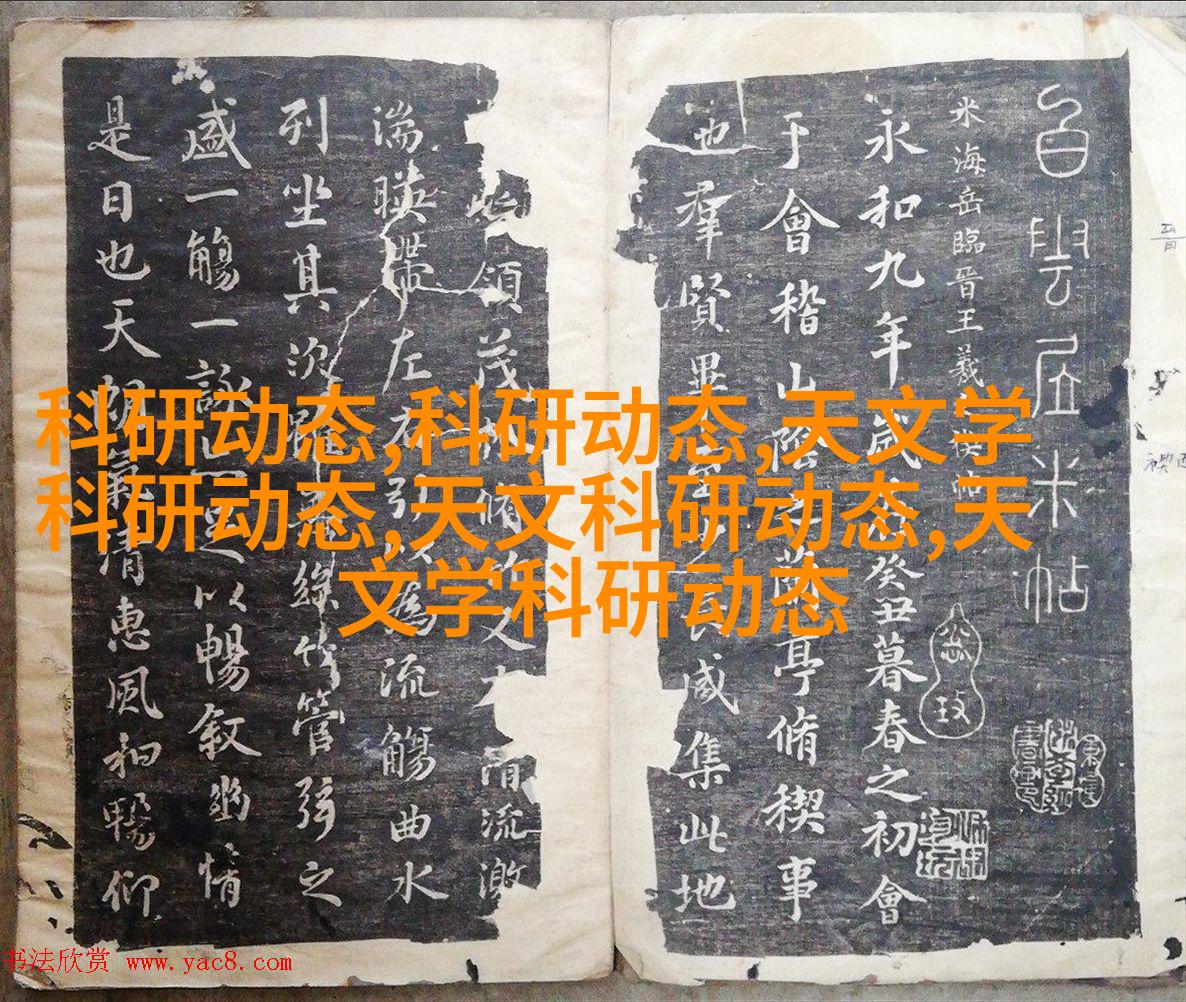 白雲居米帖
米海岳臨晉王羲之禊帖
永和九年歲在癸丑暮春之初會
于會稽山陰之蘭亭脩禊事
也羣賢畢至少長咸集此地
領茂林脩竹又有清流激
湍暎帶左右引以為流觴曲水
列坐其次雖無絲竹管弦之
盛一觴一詠亦足以暢敘幽情
是日也天朗氣清惠風和暢仰
科研动态,科研动态,天文学
科研动态,天文科研动态,天
文学科研动态
书法欣赏 www.yac8.com